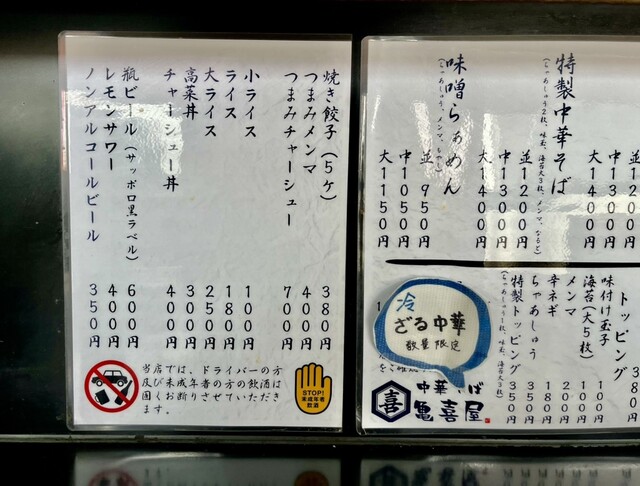 焼き餃子(5ケ) 380円
つまみメンマ 400円
つまみチャーシュー 700円
小ライス 100円
ライス 180円
大ライス 250円
高菜丼 300円
チャーシュー丼 400円
瓶ビール(サッポロ黒ラベル) 600円
レモンサワー 400円
ノンアルコールビール 350円
当店では、ドライバーの方
及び未成年者の方の飲酒は
固くお断りさせていただき
ます。
STOP!
未成年者
飲酒
特製中華そば
(ちゃあしゅう2枚、味玉、海苔大3枚、メンマ、なると)
並1200円
中1300円
大1400円
味噌らぁめん
(ちゃあしゅう、メンマ、もやし)
並950円
中1050円
大1150円
トッピング
味付け玉子
海苔(大5枚)
メンマ 200円
辛ネギ
ちゃあしゅう 350円
特製トッピング
冷
ざる中華
数量限定
喜
中華そば
亀喜屋